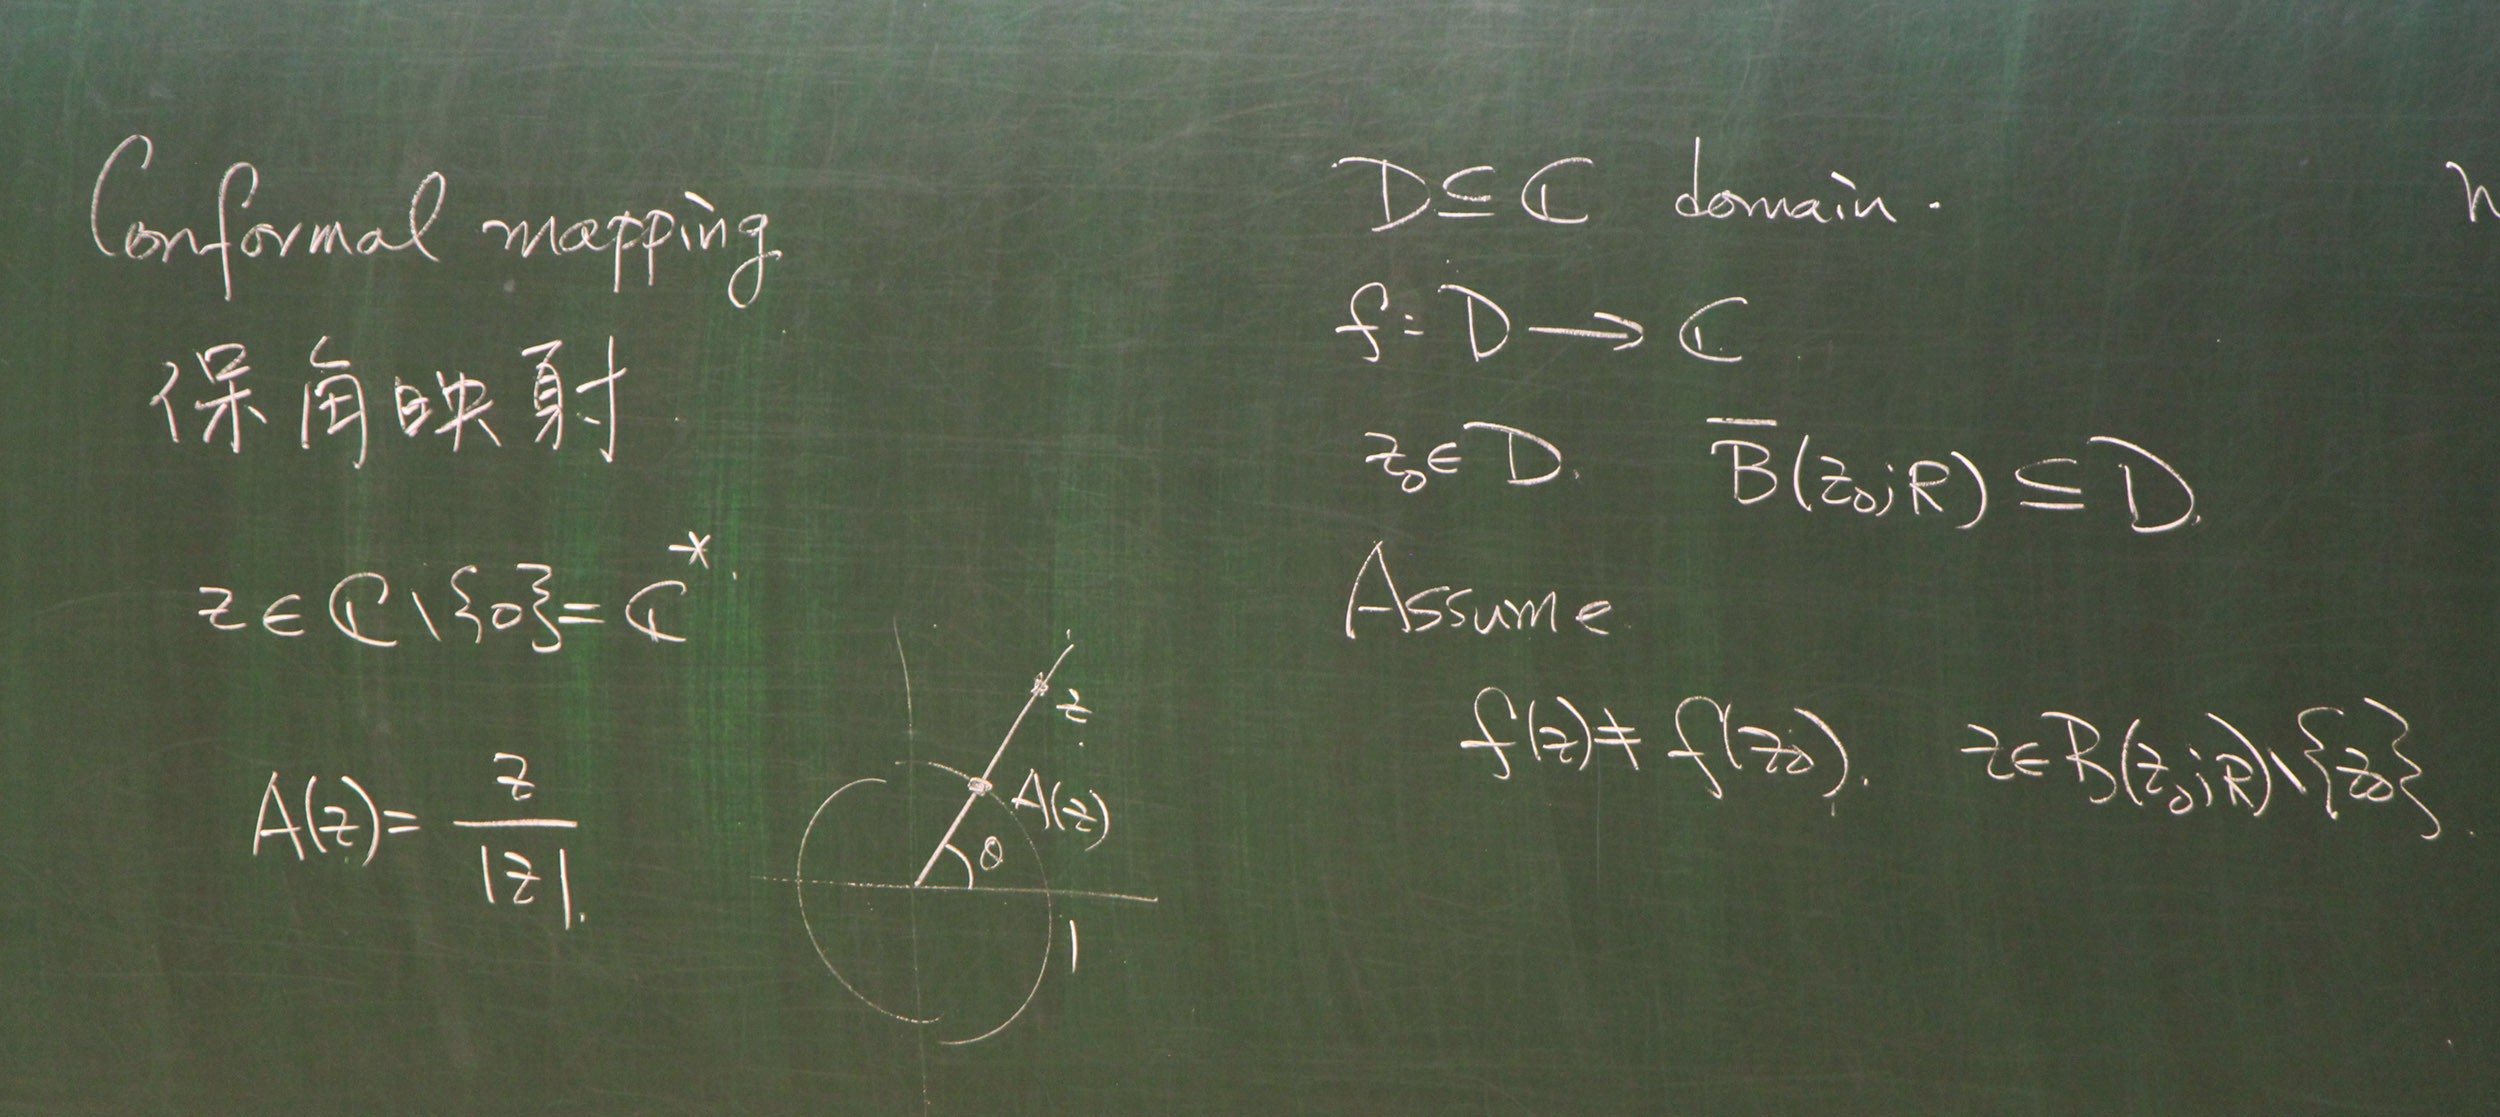 Conformal mapping
保角映射
z ∈ ℂ \ {0} = ℂ*.
A(z) = z / |z|.
z
A(z)
θ
1
D ⊆ ℂ domain.
f: D → ℂ
z₀ ∈ D. B̅(z₀; R) ⊆ D.
Assume
f(z) ≠ f(z₀). z ∈ B(z₀; R) \ {z₀}.